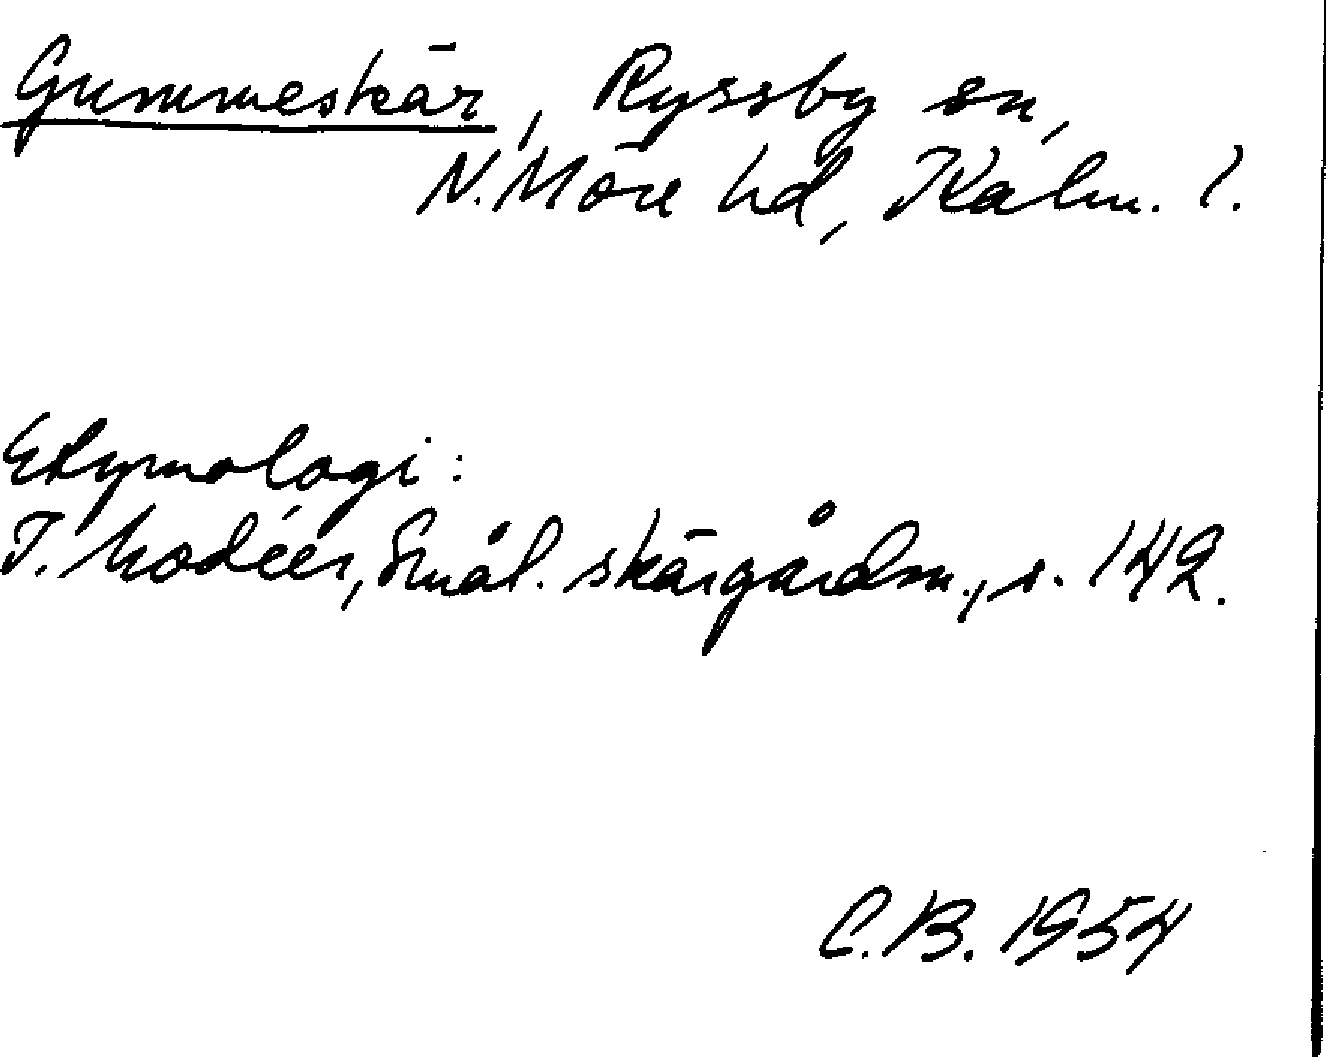 Gummeskär, Ryssby sn,
N. Möre hd, Kalm. l.
Etymologi:
I. Modéer, Smål. skärgårdsn., s. 142.
C.B. 1954